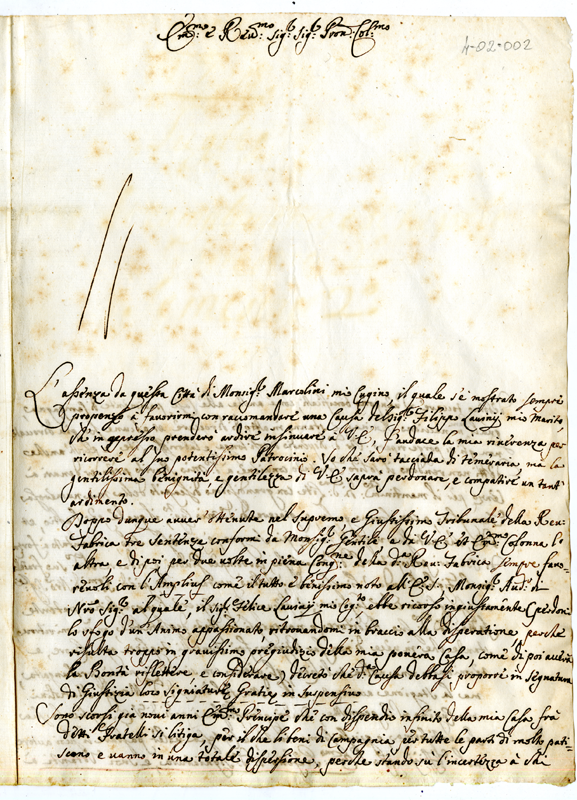 Em.mo e Reu.mo Sig.r Sig.r Pron Col.mo
4-02-002
L'assenza da questa Città di Monsig.r Marcolini mio Cugino, il quale s'è mostrato sempre
propenso à favorirmi con racomandare una Causa del Sig.r Filippo mio Marito,
hà in appresso prendere ardire insinuare à V.E., l'audace la mia riverenza per
ricorrere al suo potentissimo Patrocinio. So che sarò tacciata di temeraria mà la
gentilissima benignità, e gentilezza di V.E. saprà perdonare, e compatire un tant'
ardimento.
Doppo dunque avver ottenute nel Supremo e Giustissimo Tribunale della Reu:
Fabrica tre Sentenze conformi da Monsig.r Gentile e di V.E. Colonna le
altre, e di poi per due volte in piena Cong.ne della d.a Reu: Fabrica sempre favo-
revoli con l'Amplius come il tutto è benissimo noto all'E.V. Monsig.r Aud.r di
Nro Sig.re al quale, il Sig.r Felice mio Cog.to ebbe ricorso ingiustamente (perdoni
lo sfogo d'un Animo appassionato ritrovandomi in braccio alla disperatione, perche
risulta troppo in gravissimo pregiudizio della mia povera Casa, come di poi auerà
la Bontà riflettere, e considerare) decretò che d.a Causa debbasi proporre in Segnatura
di Giustizia loco Signiature Gratie, in suspensivo
Sono scorsi già noui anni Em.mo Principe che con dispendio infinito della mia Casa frà
d.tti Fratelli si litiga, per il che li beni di Campagna per tutte le parti di molto pati-
scono e uanno in una totale dispersione, perche stando su l'incertezza à chi